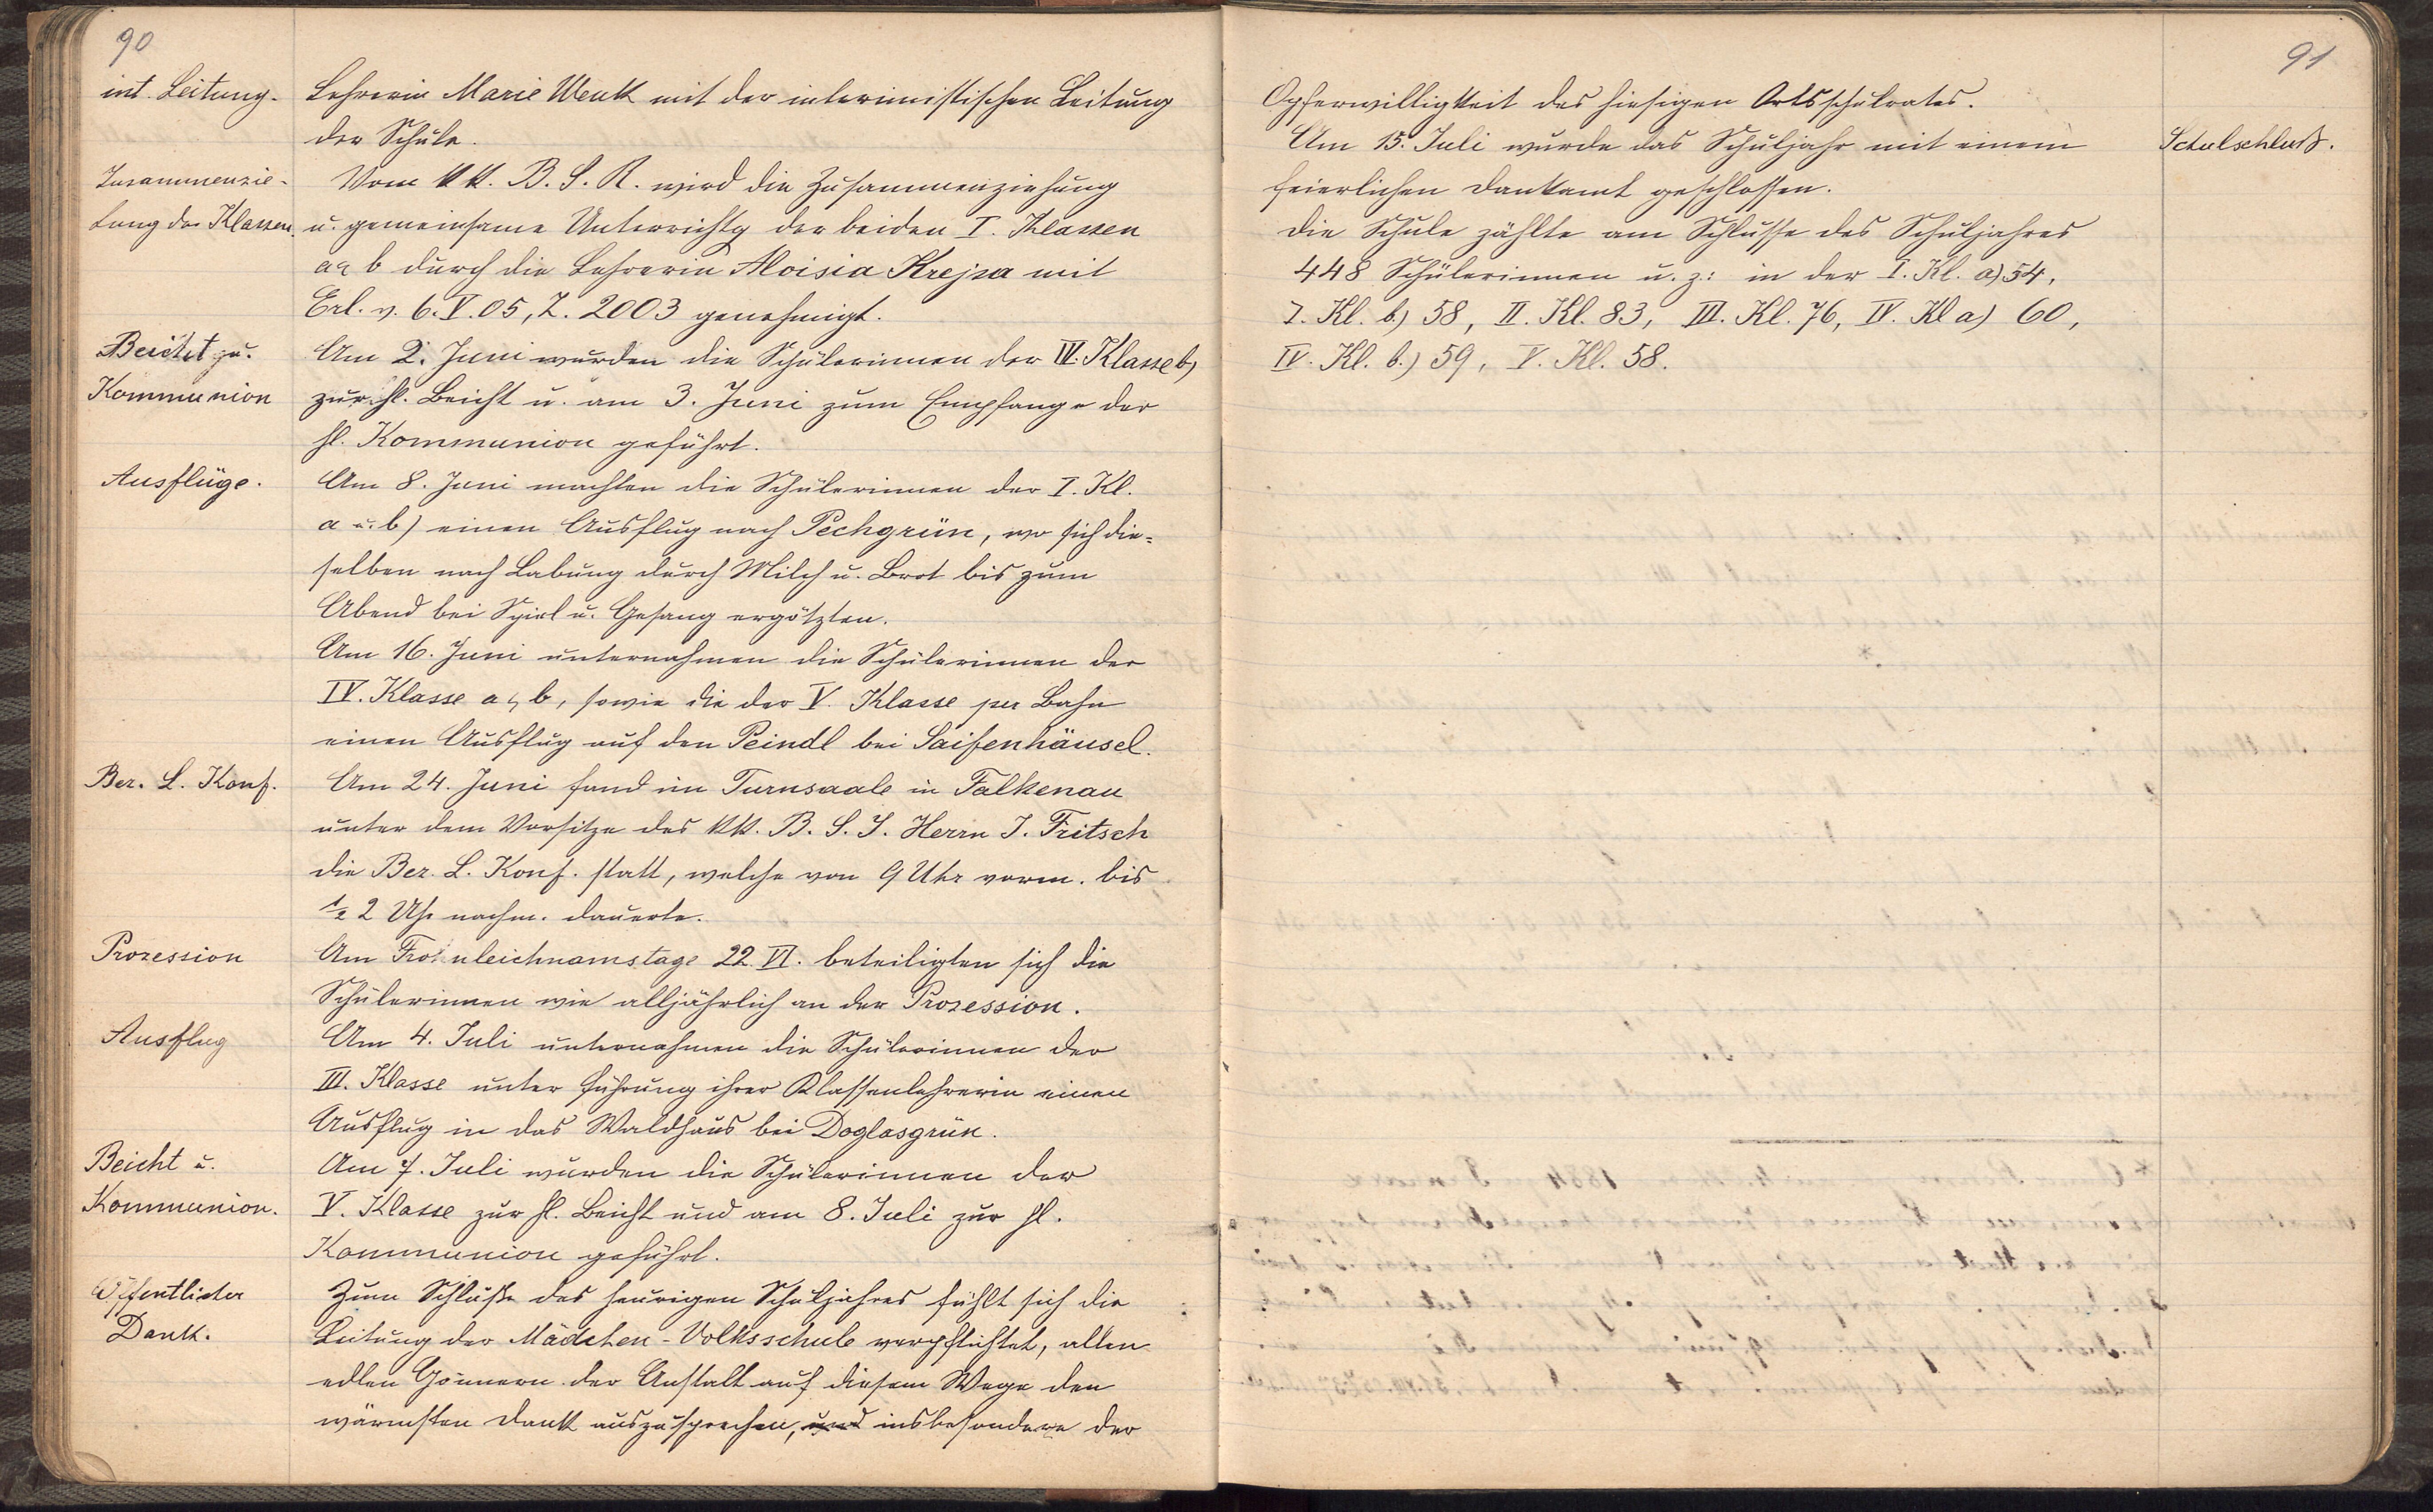 90
int. Leitung.
Lehrerin Marie Wenk mit der interimistischen Leitung
der Schule.
Zusammenzie-
hung der Klassen.
Vom k.k. B. S. R. wird die Zusammenziehung
u. gemeinsame Unterrichtg der beiden I. Klassen
a & b durch die Lehrerin Aloisia Krejza mit
Erl. v. 6. V. 05, Z. 2003 genehmigt.
Beicht u.
Kommunion
Am 2. Juni wurden die Schülerinnen der IV. Klasse b)
zur hl. Beicht u. am 3. Juni zum Empfange der
hl. Kommunion geführt.
Ausflüge.
Am 8. Juni machten die Schülerinnen der I. Kl.
a u. b) einen Ausflug nach Pechgrün, wo sich die=
selben nach Labung durch Milch u. Brot bis zum
Abend bei Spiel u. Gesang ergötzten.
Am 16. Juni unternahmen die Schülerinnen der
IV. Klasse a & b, sowie die der V. Klasse per Bahn
einen Ausflug auf den Peindl bei Saifenhäusel.
Bez. L. Konf.
Am 24. Juni fand im Turnsaale in Falkenau
unter dem Vorsitze des k.k. B. S. I. Herrn J. Fritsch
die Bez. L. Konf. statt, welche von 9 Uhr vorm. bis
1/2 2 Uhr nachm. dauerte.
Prozession
Am Frohnleichnamstage 22. VI. beteiligten sich die
Schülerinnen wie alljährlich an der Prozession.
Ausflug
Am 4. Juli unternahmen die Schülerinnen der
III. Klasse unter Führung ihrer Klassenlehrerin einen
Ausflug in das Waldhaus bei Doglasgrün.
Beicht u.
Kommunion.
Am 7. Juli wurden die Schülerinnen der
V. Klasse zur hl. Beicht und am 8. Juli zur hl.
Kommunion geführt.
Öffentlicher
Dank.
Zum Schluße des heurigen Schuljahres fühlt sich die
Leitung der Mädchen-Volksschule verpflichtet, allen
edlen Gönnern der Anstalt auf diesem Wege den
wärmsten Dank auszusprechen, und insbesondere der
91
Opferwilligkeit des hiesigen Ortsschulrates.
Schulschluß.
Am 15. Juli wurde das Schuljahr mit einem
feierlichen Dankamt geschlossen.
Die Schule zählte am Schlusse des Schuljahres
448 Schülerinnen u. z: in der I. Kl. a) 54,
I. Kl. b.) 58, II. Kl. 83, III. Kl. 76, IV. Kl a) 60,
IV. Kl. b.) 59, V. Kl. 58.